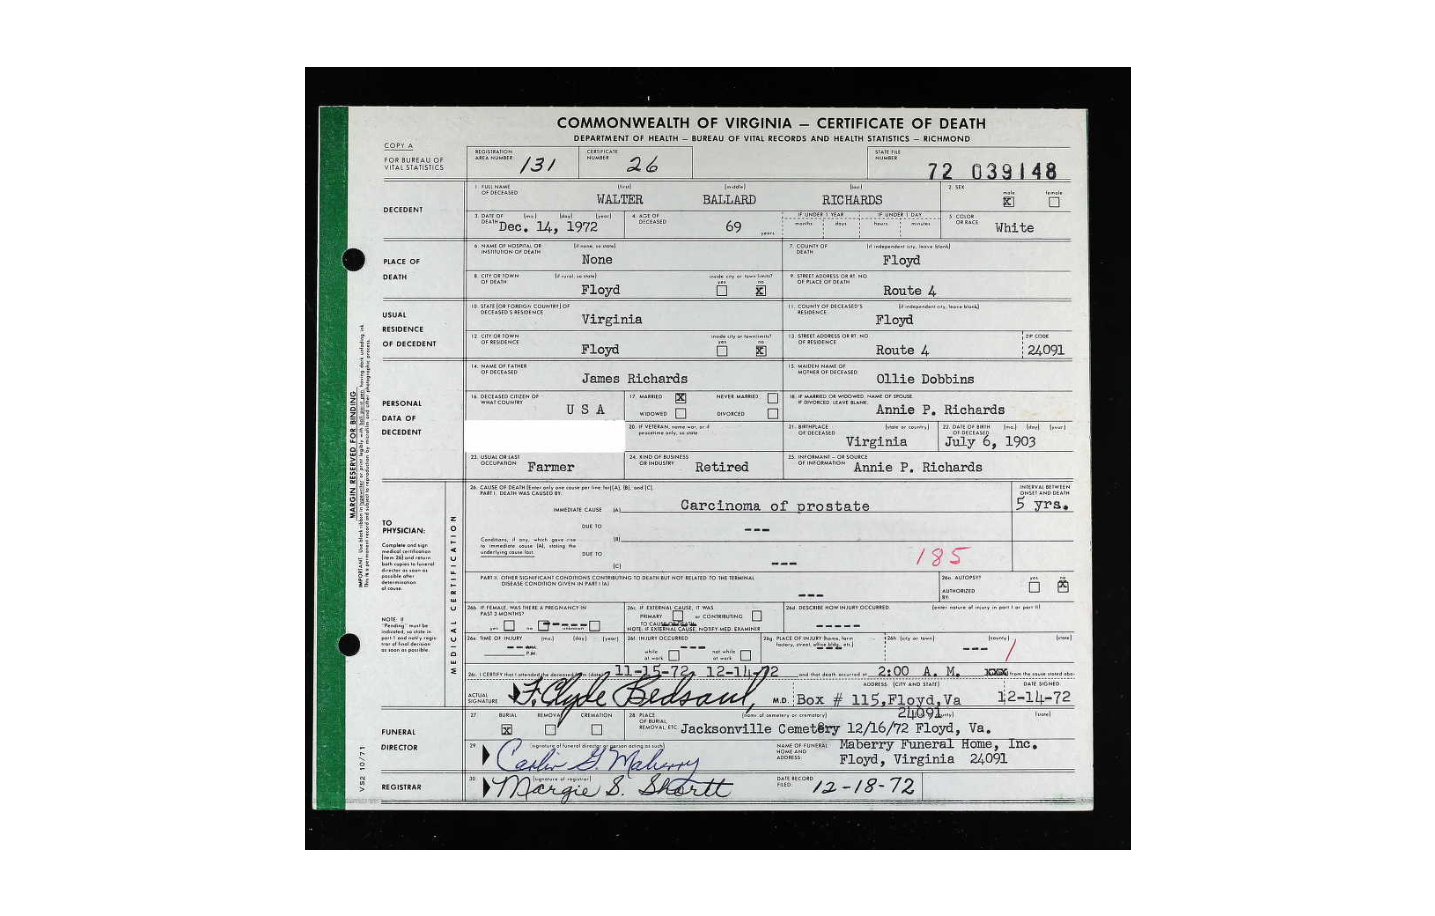 COMMONWEALTH OF VIRGINIA — CERTIFICATE OF DEATH
DEPARTMENT OF HEALTH — BUREAU OF VITAL RECORDS AND HEALTH STATISTICS — RICHMOND
COPY A
FOR BUREAU OF VITAL STATISTICS
REGISTRATION AREA NUMBER 131
CERTIFICATE NUMBER 26
STATE FILE NUMBER 72 039148
DECEDENT
1. FULL NAME OF DECEASED (first) (middle) (last)
WALTER BALLARD RICHARDS
2. SEX male X female
3. DATE OF DEATH (mo.) (day) (year) Dec. 14, 1972
4. AGE OF DECEASED 69 years
IF UNDER 1 YEAR months days
IF UNDER 1 DAY hours minutes
5. COLOR OR RACE White
PLACE OF DEATH
6. NAME OF HOSPITAL OR INSTITUTION OF DEATH (if none, so state) None
7. COUNTY OF DEATH (if independent city, leave blank) Floyd
8. CITY OR TOWN OF DEATH (if rural, so state) Floyd
inside city or town limits? yes no X
9. STREET ADDRESS OR RT. NO. OF PLACE OF DEATH Route 4
USUAL RESIDENCE OF DECEDENT
10. STATE (OR FOREIGN COUNTRY) OF DECEASED'S RESIDENCE Virginia
11. COUNTY OF DECEASED'S RESIDENCE (if independent city, leave blank) Floyd
12. CITY OR TOWN OF RESIDENCE Floyd
inside city or town limits? yes no X
13. STREET ADDRESS OR RT. NO. OF RESIDENCE Route 4
ZIP CODE 24091
PERSONAL DATA OF DECEDENT
14. NAME OF FATHER OF DECEASED James Richards
15. MAIDEN NAME OF MOTHER OF DECEASED Ollie Dobbins
16. DECEASED CITIZEN OF WHAT COUNTRY U S A
17. MARRIED X NEVER MARRIED
WIDOWED DIVORCED
18. IF MARRIED OR WIDOWED, NAME OF SPOUSE IF DIVORCED, LEAVE BLANK Annie P. Richards
20. IF VETERAN, name war, or if peacetime only, so state
21. BIRTHPLACE OF DECEASED (state or country) Virginia
22. DATE OF BIRTH OF DECEASED (mo.) (day) (year) July 6, 1903
23. USUAL OR LAST OCCUPATION Farmer
24. KIND OF BUSINESS OR INDUSTRY Retired
25. INFORMANT - OR SOURCE OF INFORMATION Annie P. Richards
MARGIN RESERVED FOR BINDING
MEDICAL CERTIFICATION
TO PHYSICIAN:
Complete and sign medical certification (item 26) and return both copies to funeral director as soon as possible after determination of cause.
NOTE: If "Pending" must be indicated, so state in part 1 and notify registrar of final decision as soon as possible.
26. CAUSE OF DEATH (Enter only one cause per line for (A), (B), and (C).
PART I. DEATH WAS CAUSED BY:
INTERVAL BETWEEN ONSET AND DEATH
IMMEDIATE CAUSE (A) Carcinoma of prostate 5 yrs.
DUE TO ---
Conditions, if any, which gave rise to immediate cause (A), stating the underlying cause last
(B)
DUE TO
(C) ---
185
PART II. OTHER SIGNIFICANT CONDITIONS CONTRIBUTING TO DEATH BUT NOT RELATED TO THE TERMINAL DISEASE CONDITION GIVEN IN PART I (A) ---
26a. AUTOPSY? yes no X
AUTHORIZED BY:
26b. IF FEMALE, WAS THERE A PREGNANCY IN PAST 3 MONTHS? yes no unknown
26c. IF EXTERNAL CAUSE, IT WAS PRIMARY or CONTRIBUTING TO CAUSE OF DEATH
NOTE: IF EXTERNAL CAUSE, NOTIFY MED. EXAMINER
26d. DESCRIBE HOW INJURY OCCURRED (enter nature of injury in part I or part II) -----
26e. TIME OF INJURY (mo.) (day) (year)
26f. INJURY OCCURRED while at work not while at work
26g. PLACE OF INJURY (home, farm factory, street, office bldg., etc.)
26h. (city or town) (county) (state) ---
26i. I CERTIFY that I attended the deceased 11-15-72 12-14-72 and that death occurred at 2:00 A. M. XXX from the cause stated above
ACTUAL SIGNATURE F. Clyde Bedsaul, M.D.
ADDRESS: (CITY AND STATE) Box # 115, Floyd, Va 24091
DATE SIGNED 12-14-72
FUNERAL DIRECTOR
27. BURIAL X REMOVAL CREMATION
28. PLACE OF BURIAL REMOVAL, ETC. (name of cemetery or crematory) (county) (state)
Jacksonville Cemetery 12/16/72 Floyd, Va.
29. (signature of funeral director or person acting as such) Carlin G. Maberry
NAME OF FUNERAL HOME AND ADDRESS: Maberry Funeral Home, Inc.
Floyd, Virginia 24091
REGISTRAR
30. (signature of registrar) Margie S. Shortt
DATE RECORD FILED 12-18-72
VS2 10/71